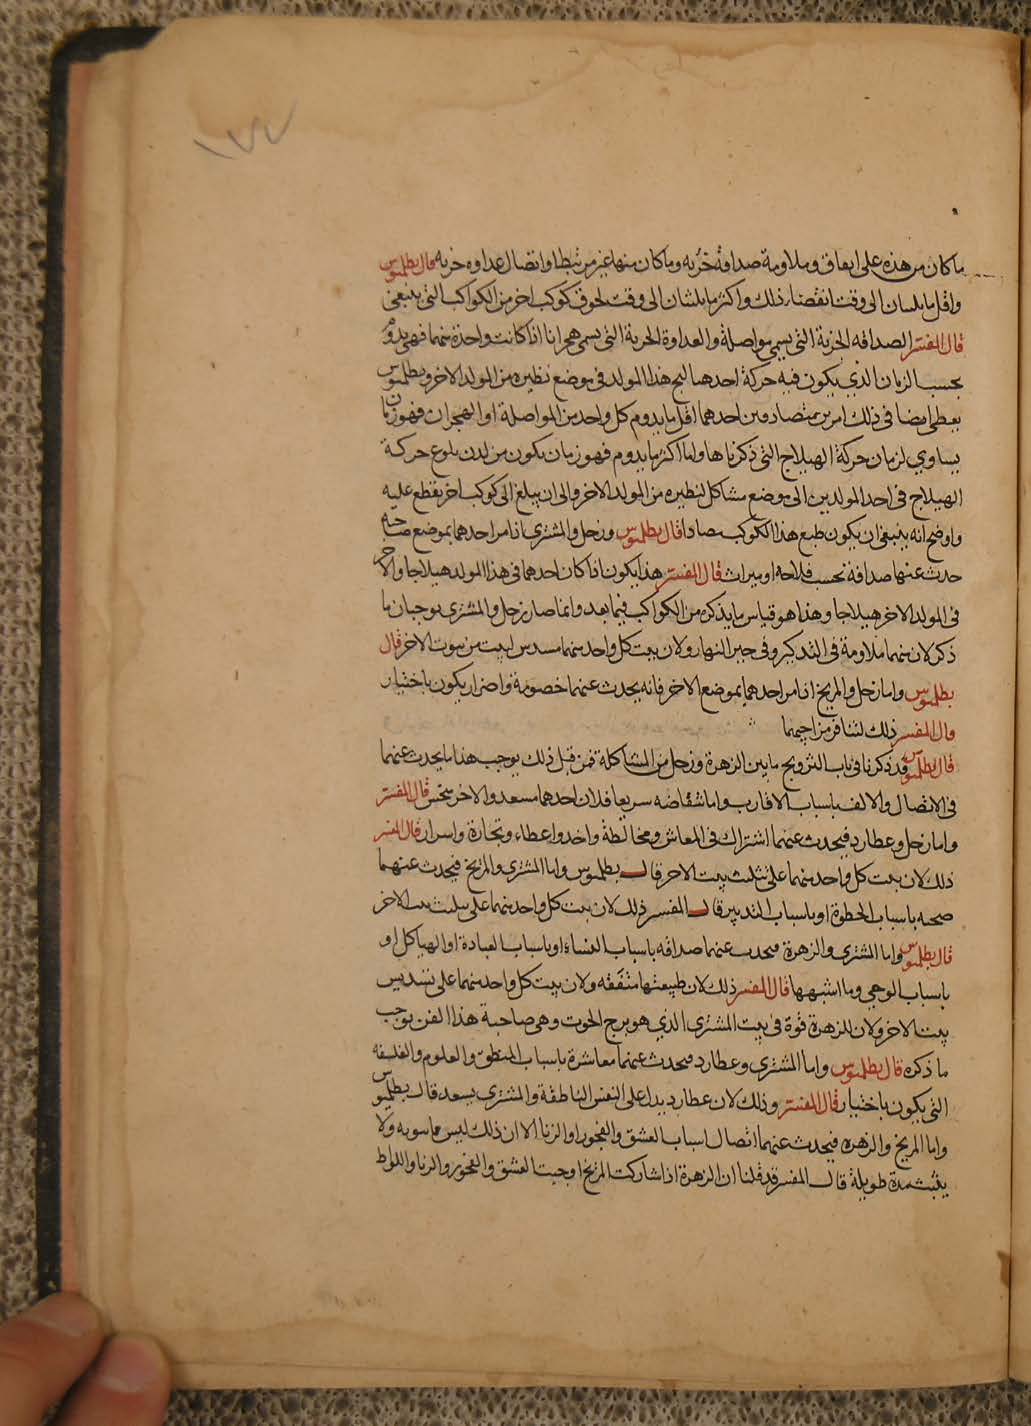 ١٧٧
ما كان من هذه على اتفاق وملاومة صداقة حزبه وما كان منها غير مرتبطا واتصال عداوه حزبه قال بطلميوس
واقل ما يلبثان الى وقت انقضاء ذلك واكثر ما يلبثان الى وقت لحوق كوكب اخر من الكواكب التى ينبغى
قال المفسر الصداقه الحزبة التى يسمى مواصلة والعداوة الحربة التى يسمى هجرانا اذا كانت واحدة منهما فهى يدوم
بحسب الزمان الذي يكون فيه حركة احدهما لبج هذا المولد فى موضع نظيره من المولد الاخر وبطلميوس
يعطى ايضا فى ذلك امرين متضادين احدهما اقل ما يدوم كل واحد من المواصلة او الهجران فهو زمان
يساوي لزمان حركة الهيلاج التى ذكرناها واما اكثر ما يدوم فهو زمان يكون من لدن بلوغ حركة
الهيلاج فى احد المولدين الى موضع مشاكل لنظيره من المولد الاخر والى ان يبلغ الى كوكب اخر يقطع عليه
واوضح انه ينبغى ان يكون طبع هذا الكوكب مضادا قال بطلميوس وزحل والمشترى اذا مر احدهما بموضع صاحبه
حدث عنها صداقة بحسب فلاحه او ميراث قال المفسر هذا يكون اذا كان احدهما فى هذا المولد هيلاجا والاخر
فى المولد الاخر هيلاجا وهذا هو قياس ما يذكره من الكواكب فيما بعد وانما صار زحل والمشترى يوجبان ما
ذكر لان بينهما ملاومة فى التذكير وفى حيز النهار ولان بيت كل واحد منهما مسدس لبيت من بيوت الاخر قال
بطلميوس واما زحل والمريخ اذا مر احدهما بموضع الاخر فانه يحدث عنهما خصومة واضرار يكون باختيار
قال المفسر ذلك لتنافر مزاجيهما
قال بطلميوس قد ذكرنا فى باب التزويج ما بين الزهرة وزحل من المشاكلة فمن قبل ذلك يوجب هذا ما يحدث عنهما
فى الاتصال والالف باسباب الاقارب واما انتقاضه سريعا فلان احدهما مسعد والاخر منحس قال المفسر
واما زحل وعطارد فيحدث عنهما اشتراك فى المعاش ومخالطة واخذ واعطاء وتجارة واسرار قال المفسر
ذلك لان بيت كل واحد منهما على تثليث بيت الاخر قال بطلميوس واما المشترى والمريخ فيحدث عنهما
صحبه باسباب الحظوة او باسباب التدبير قال المفسر ذلك لان بيت كل واحد منهما على تثليث بيت الاخر
قال بطلميوس واما المشترى والزهرة فيحدث عنهما صداقه باسباب النساء او باسباب العبادة او الهياكل او
باسباب الوحي وما اشبهها قال المفسر ذلك لان طبيعتها متفقه ولان بيت كل واحد منهما على تسديس
بيت الاخر ولان للزهرة قوة فى بيت المشترى الذي هو برج الحوت وهى صاحبة هذا الفن يوجب
ما ذكره قال بطلميوس واما المشترى وعطارد فيحدث عنهما معاشرة باسباب المنطق والعلوم والفلسفه
التى يكون باختيار قال المفسر وذلك لان عطارد يدل على النفس الناطقة والمشترى يسعد قال بطلميوس
واما المريخ والزهره فيحدث عنهما اتصال اسباب العشق والفجور او الزنا الا ان ذلك ليس ولا
يثبت مدة طويلة قال المفسر قد قلنا ان الزهرة اذا شاركت المريخ اوجبت العشق والفجور والزنا واللواط